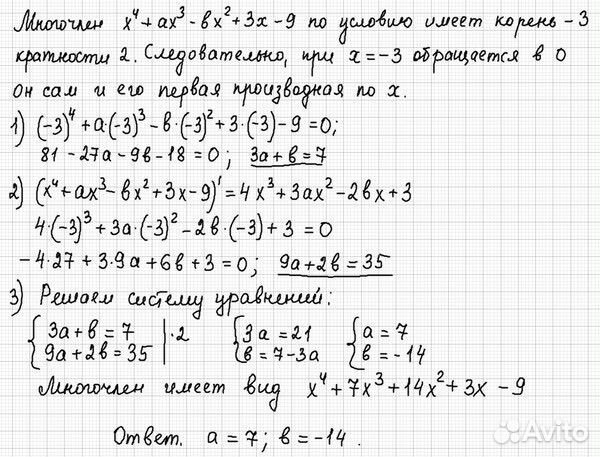 Многочлен x⁴+ax³-bx²+3x-9 по условию имеет корень -3
кратности 2. Следовательно, при x=-3 обращается в 0
он сам и его первая производная по x.
1) (-3)⁴+a·(-3)³-b·(-3)²+3·(-3)-9=0;
81-27a-9b-18=0; 3a+b=7
2) (x⁴+ax³-bx²+3x-9)'=4x³+3ax²-2bx+3
4·(-3)³+3a·(-3)²-2b·(-3)+3=0
-4·27+3·9a+6b+3=0; 9a+2b=35
3) Решаем систему уравнений:
{3a+b=7 |·2 {3a=21 {a=7
{9a+2b=35 | {b=7-3a {b=-14
Многочлен имеет вид x⁴+7x³+14x²+3x-9
Ответ. a=7; b=-14.
Avito